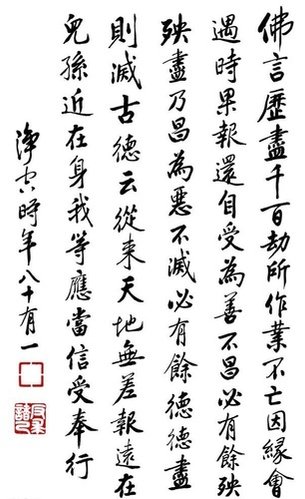 佛言歷盡千百劫所作業不亡因緣會
遇時果報還自受為善不昌必有餘殃
殃盡乃昌為惡不滅必有餘德德盡
則滅古德云從來天地無差報遠在
兒孫近在身我等應當信受奉行
淨空時年八十有一